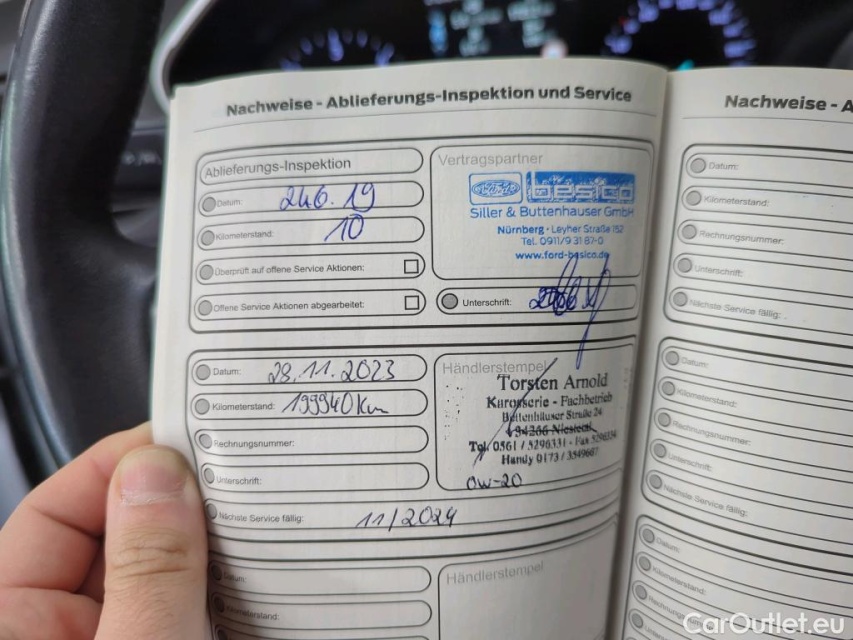 Nachweise - Ablieferungs-Inspektion und Service
Ablieferungs-Inspektion
Datum: 24.6.19
Kilometerstand: 10
Überprüft auf offene Service Aktionen:
Offene Service Aktionen abgearbeitet:
Vertragspartner
Ford besico
Siller & Buttenhauser GmbH
Nürnberg · Leyher Straße 152
Tel. 0911/9 31 87-0
www.ford-besico.de
Unterschrift:
Datum: 28.11.2023
Kilometerstand: 199940 Km
Rechnungsnummer:
Unterschrift:
Nächste Service fällig: 11/2024
Händlerstempel
Torsten Arnold
Karosserie - Fachbetrieb
Straße 24
34266 Niestetal
Tel. 0561 / 5296331 - Fax
Handy 0173 / 3549667
OW-20
Datum:
Kilometerstand:
Händlerstempel
Nachweise - A
Datum:
Kilometerstand:
Rechnungsnummer:
Unterschrift:
Nächste Service fällig:
Datum:
Kilometerstand:
Rechnungsnummer:
Unterschrift:
Nächste Service fällig:
Datum:
Kilometerstand:
Unterschrift:
CarOutlet.eu